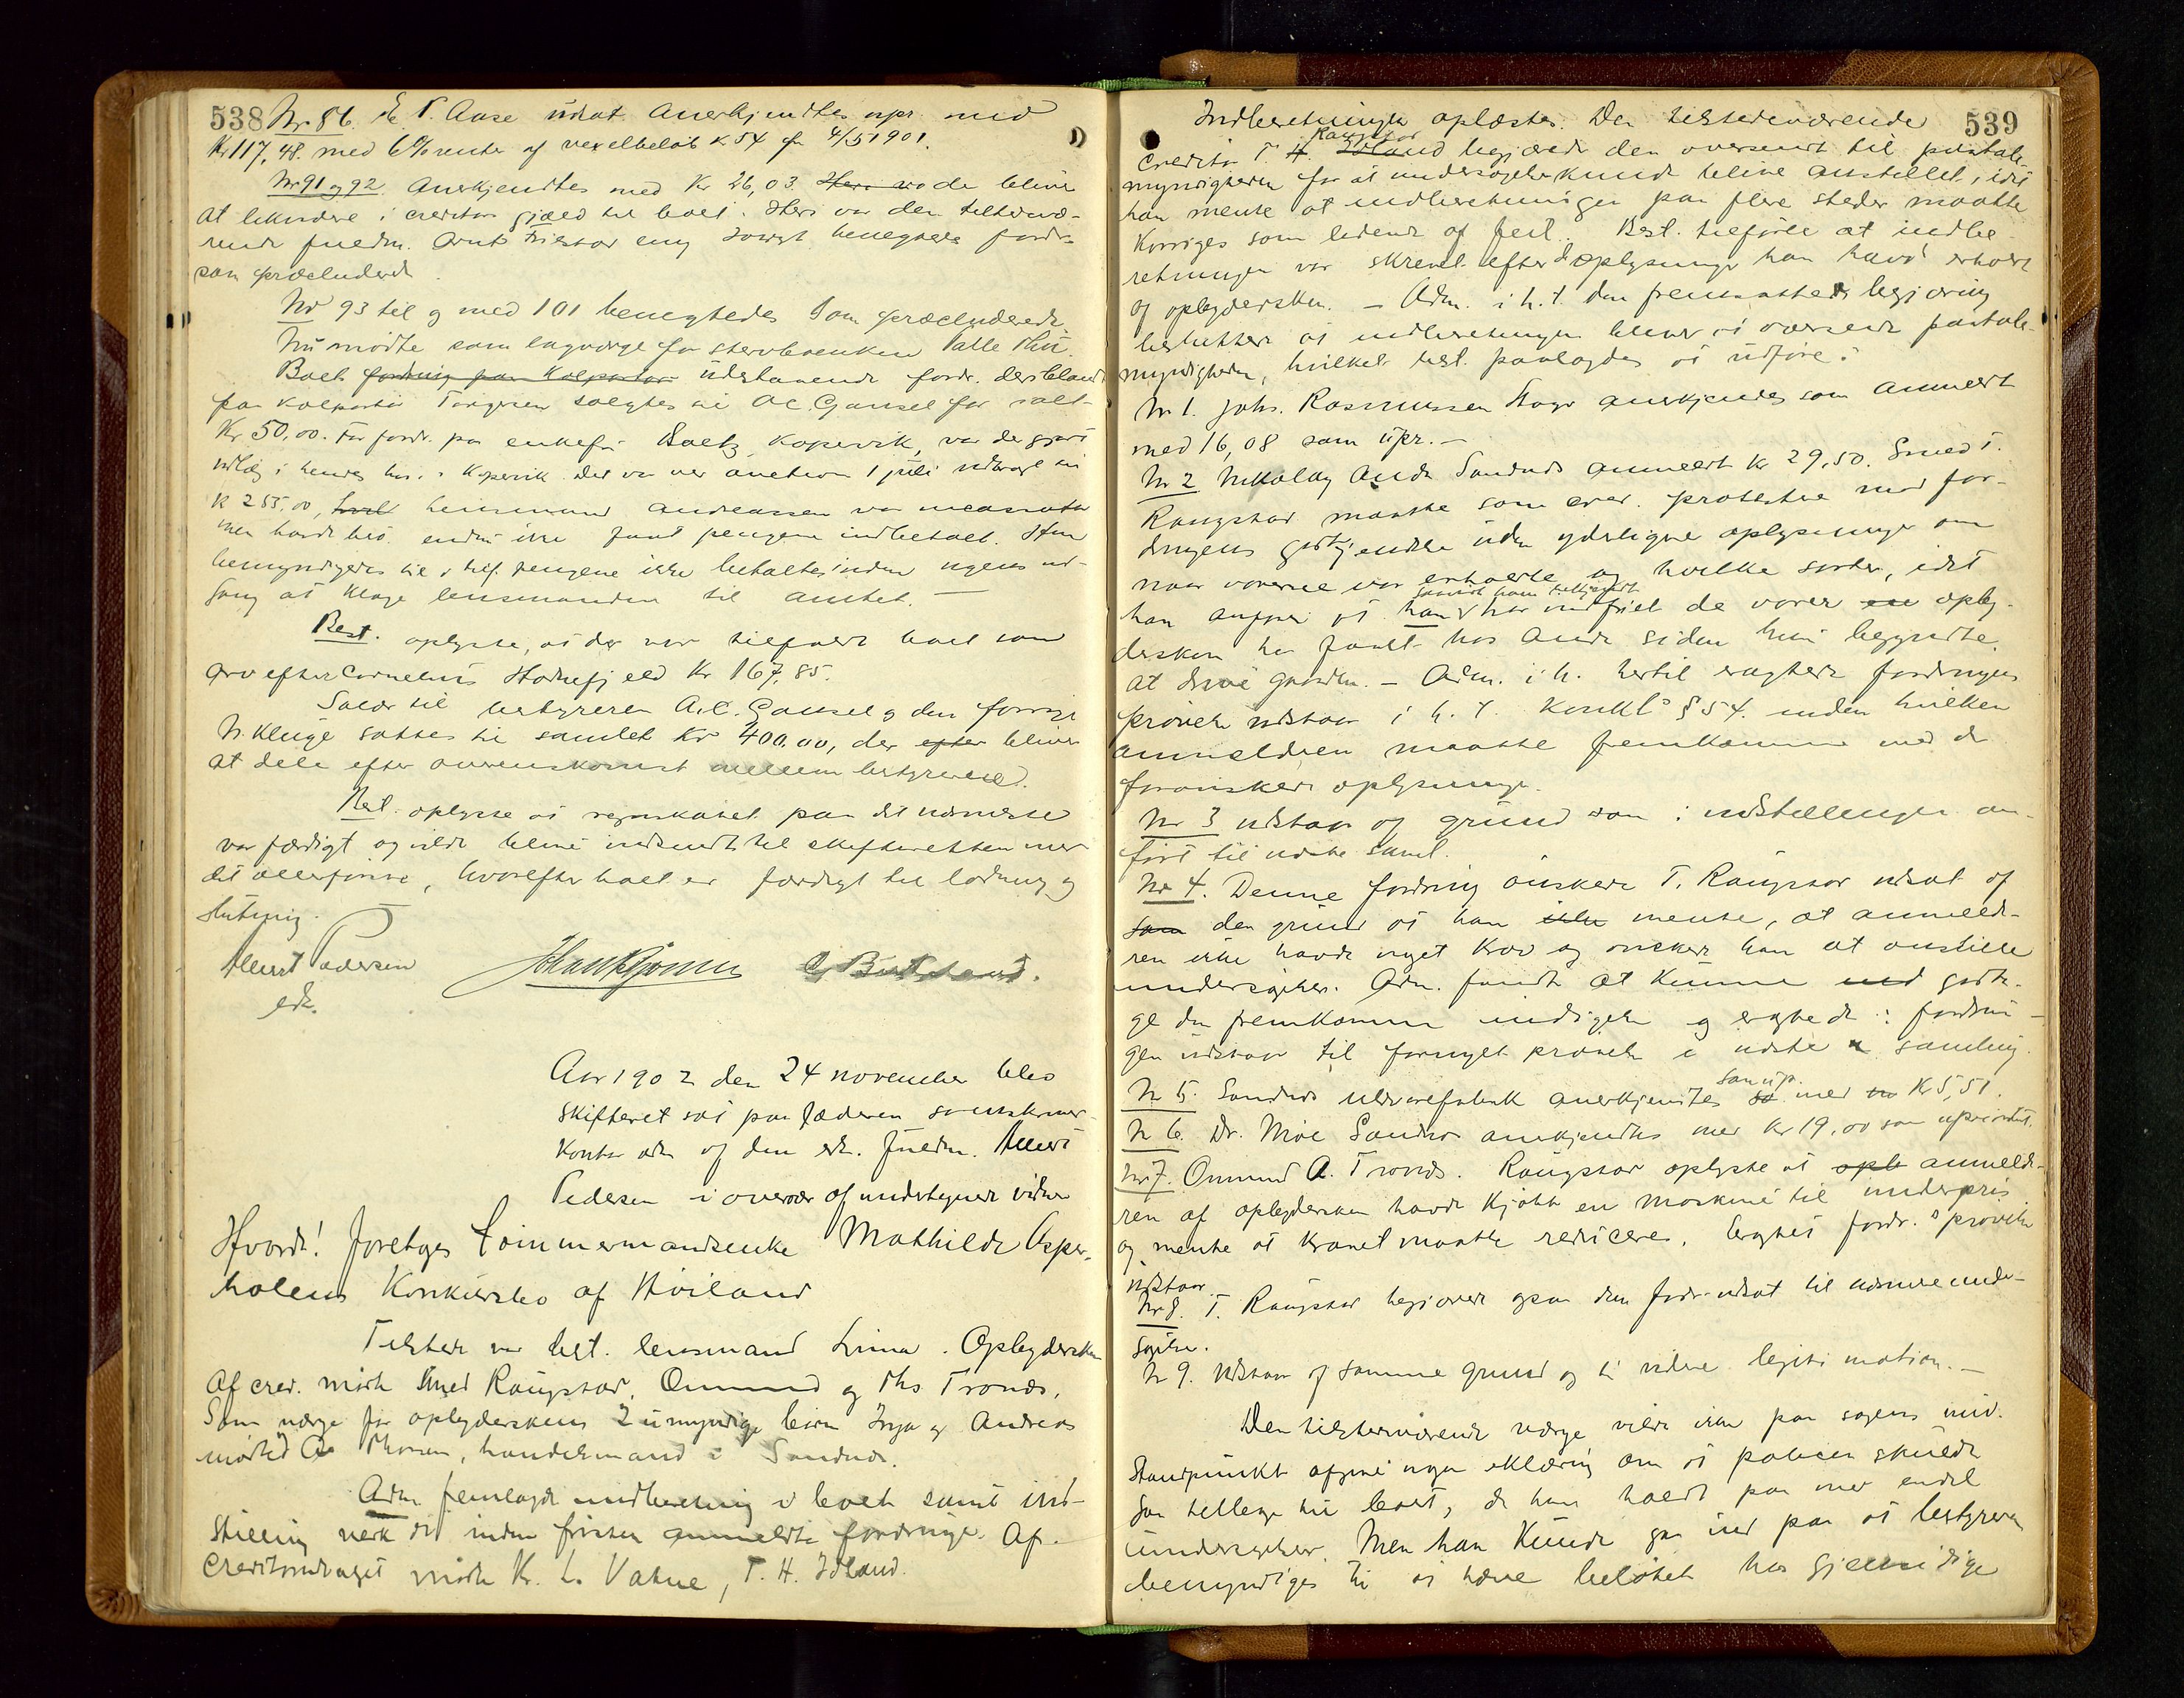 538
Nr. 86. P. Aase udsat. Anerkjendtes upr. med
Kr 117,48. med 6% rente af vexelbeløb K 54 fra 4/5 1901.
Nr 91 og 92. Anerkjendtes med Kr 26,03. de blive
at likvidere i creditors gjæld til boet. den tilstedevæ-
rende fuldm. benegtede fordr.
som præcluderede.
Nr 93 til og med 101 benegtedes som præcluderede.
Nu mødte som lagværge for stervboenken
Boets fordring paa Kolportør udestaaende fordr. deriblandt
paa Kolportør Torgersen solgtes til A. C. Gausel for ialt
Kr. 50,00. For fordr. paa enkefr. Kopervik, var der gjort
udlæg i hendes hus i Kopervik. Der var ver auction 1 juli udbragt til
K 255,00, lensmand Andreassen var
men havde endnu ikke faaet pengene indbetalt. Han
bemyndigedes til i tilf. pengene ikke betaltes inden ugens ud-
gang at klage lensmanden til amtet —
Best. oplyste, at der var tilfaldt boet som
arv efter Cornelius Hodnefjeld Kr. 167,85.
Salær til bestyreren A. C. Gausel og den forrige
N. Kluge sattes til samlet Kr 400,00, der efter bliver
at dele efter overenskomst mellem bestyrerne.
Best. oplyste at regnskabet paa det nærmeste
var færdigt og vilde blive indsendt til skifteretten med
det allerførste, hvorefter boet er færdigt til lodning og
slutning.
Aunt Pedersen
edt.
Aar 1902 den 24 november blev
skifteret sat paa Jæderen sorenskriver-
kontor adm. af den edt. fuldm.
Pedersen i overvær af undertegnede vidner
Hvorda! foretoges Tømmermandsenke Mathilde Asper-
holens Konkursbo af Høiland
Tilstede var best. lensmand Lima. Opbydersken
Af cred. mødte Smed Raugstad, Ommund og Ths Tronds.
Som værge for opbyderskens 2 umyndige børn Inga og Andreas
mødte Thorsen, handelsmand i Sandnes.
Adm. fremlagde indberetning i boet samt ind-
stilling vedk. de inden fristen anmeldte fordringer. Af
creditorudvalget mødte K. L. Vatne, T. H. Idland.
539
Indberetningen oplæstes. Den tilstedeværende
Raugstad
creditor T. H. Idland begjærede den oversendt til paatale-
myndigheden for at undersøgelse kunde blive anstillet, idet
han mente at indberetningen paa flere steder maatte
korriges som lidende af feil. Best. tilføiede at indbe-
retningen var skrevet efter de oplysninger han havde erholdt
af opbydersken. — Adm. i h. t. den fremsatte begjæring
besluttede at indberetningen bliver at oversende paatale-
myndigheden, hvilket best. paalagdes at udføre.
Nr 1. Johs. Rasmussen Stagr anerkjendes som anmeldt
med 16,08 som upr. —
Nr 2 Nikolay Anda Sandnes anmeldt Kr 29,50. Smed T.
Raugstad maatte som cred. protestere mod for-
dringens godkjendelse uden yderligere oplysninger om
naar varerne var erholdte og hvilke sorter, idet
han angav at han har indfriet de varer en opby-
dersken har faaet hos Anda siden hun begyndte
at drive gaarden. — Adm. i h. hertil eragtede fordringens
prøvelse udstaar i h. t. Konkl. § 54. inden hvilken
anmelderen maatte fremkomme med de
forønskede oplysninger.
Nr 3 udstaar af grund som i indstillingen an-
ført til næste saml.
Nr 4. Denne fordring ønskede T. Raugstad udsat af
som den grund at han ikke mente, at anmelde-
ren ikke havde noget krav og ønskede han at anstille
undersøgelser. Adm. fandt at kunne med godta-
ge den fremkomne indsigelse og eragtede: fordrin-
gen udstaar til fornyet prøvelse i næste samling.
Nr 5. Sandnes Uldvarefabrik anerkjendtes
som up.
med Kr 5,51.
Nr 6. Dr. Moe Sandnes anerkjendtes med Kr 19,00 som uprioritet.
Nr 7. Ommund A. Tronds. Raugstad oplyste at opb anmelde-
ren af opbydersken havde kjøbt en maskine til underpris
og mente at kravet maatte reduceres. Eragtet: fordr.s prøvelse
udstaar.
Nr 8. T. Raugstad begjærede ogsaa den fordr. udsat til nærmere unde-
søgelse.
Nr 9. udstaar af samme grund og til videre legitimation. —
Den tilstedeværende værge vilde ikke paa sagens nuv.
standpunkt afgive nogen erklæring om at policen skulde
tillægges boet, da han holdt paa med endel
undersøgelser. Men han kunde gaa ind paa at bestyreren
bemyndiges til at hæve beløbet hos Gjensidige